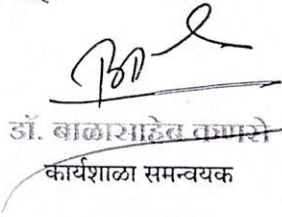 डॉ. बाळासाहेब कापसे
कार्यशाळा समन्वयक